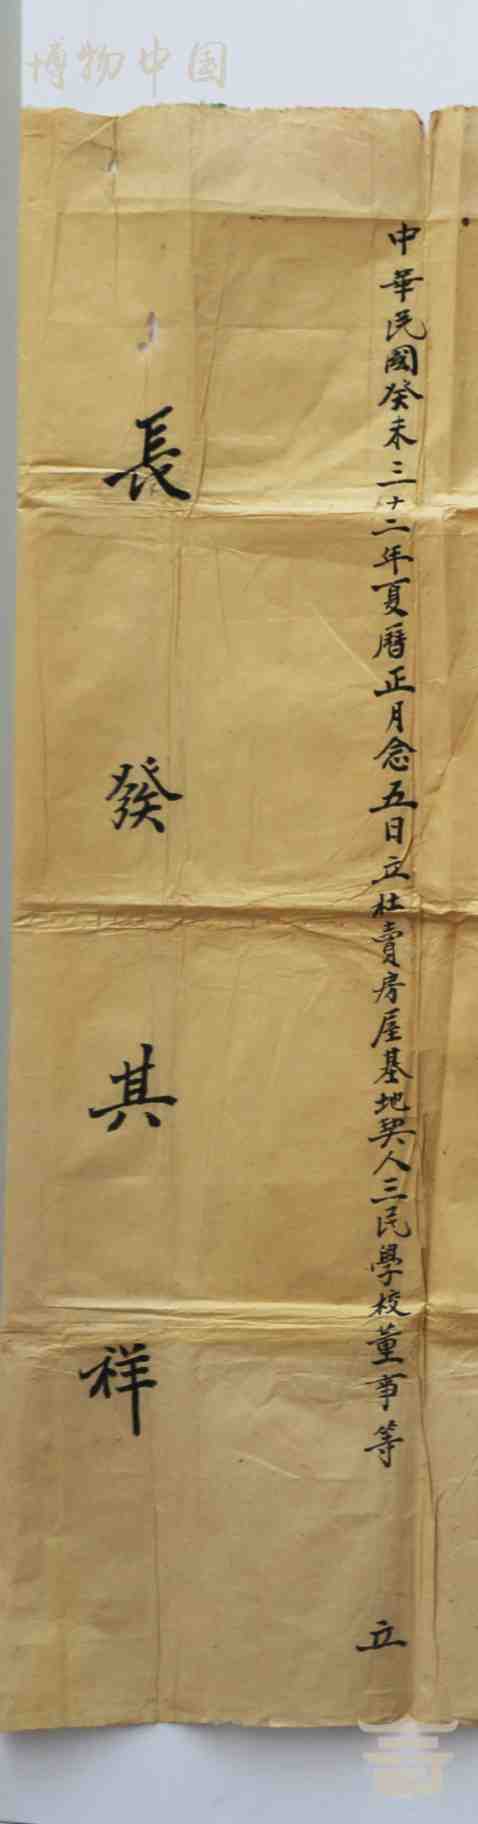 博物中国
中華民國癸未三十二年夏曆正月念五日立杜賣房屋基地契人三民學校董事等 立
長發其祥